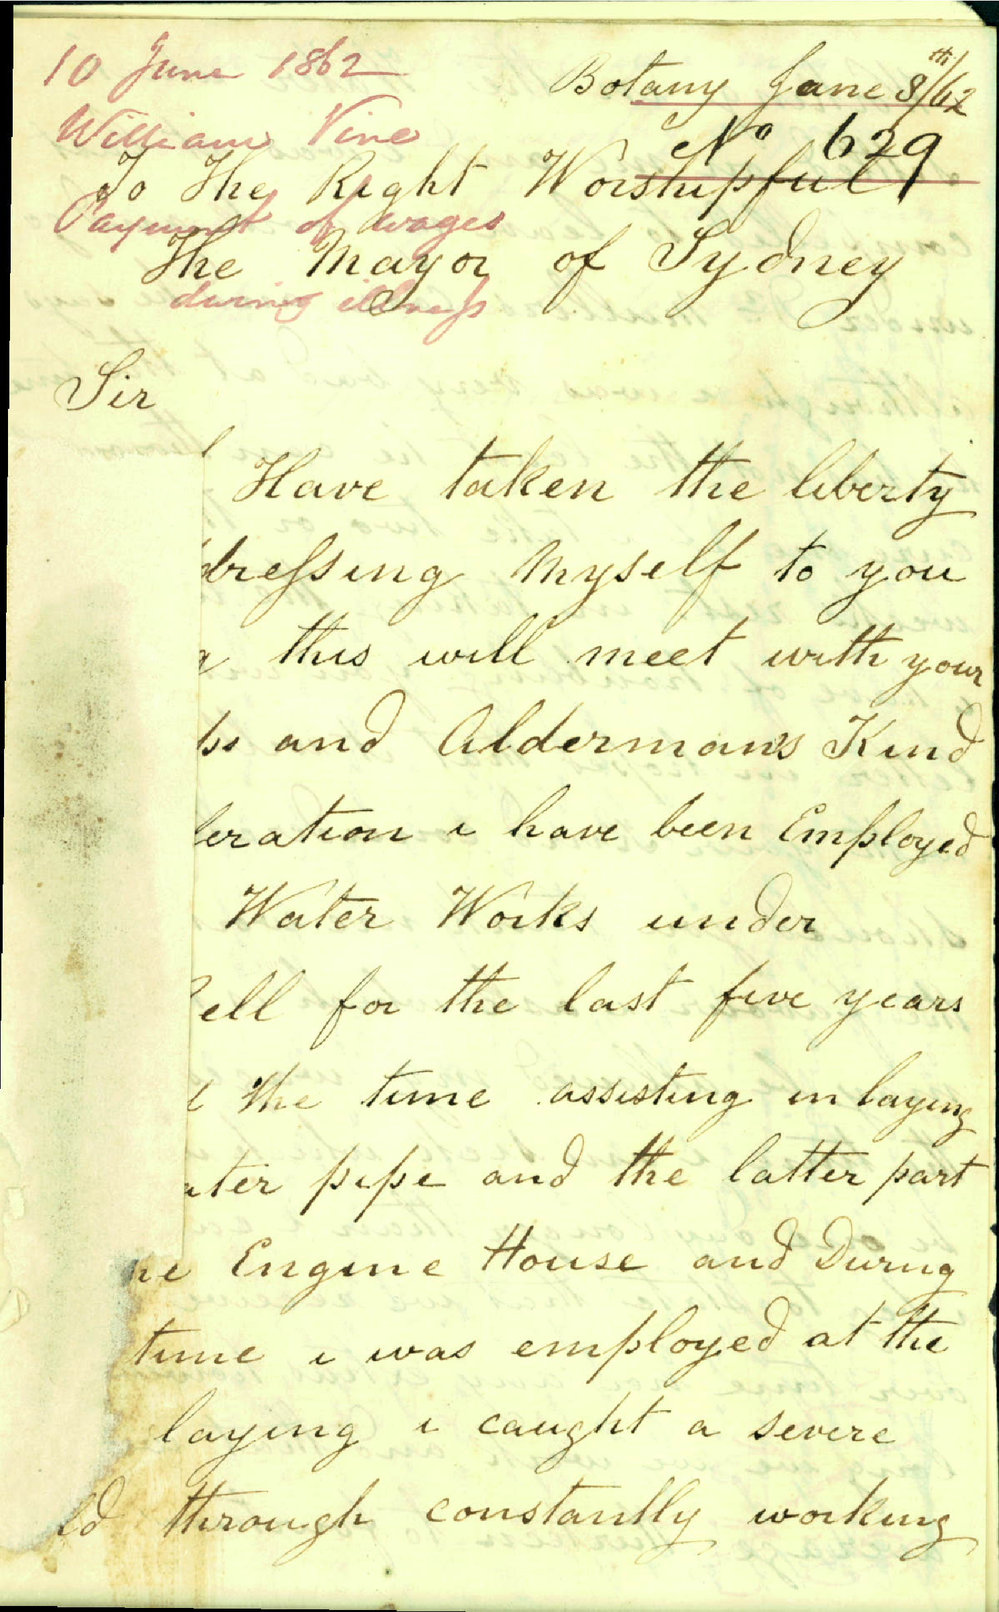 10 June 1862
Botany June 8th/62
William Vine
No 629
To The Right Worshipful
Payment of wages
The Mayor of Sydney
during illness
Sir
I Have taken the liberty
dressing Myself to you
this will meet with your
and Aldermans Kind
eration i have been Employed
Water Works under
ell for the last five years
the time assisting in laying
ater pipe and the latter part
he Engine House and During
time i was employed at the
laying i caught a severe
ld through constantly working